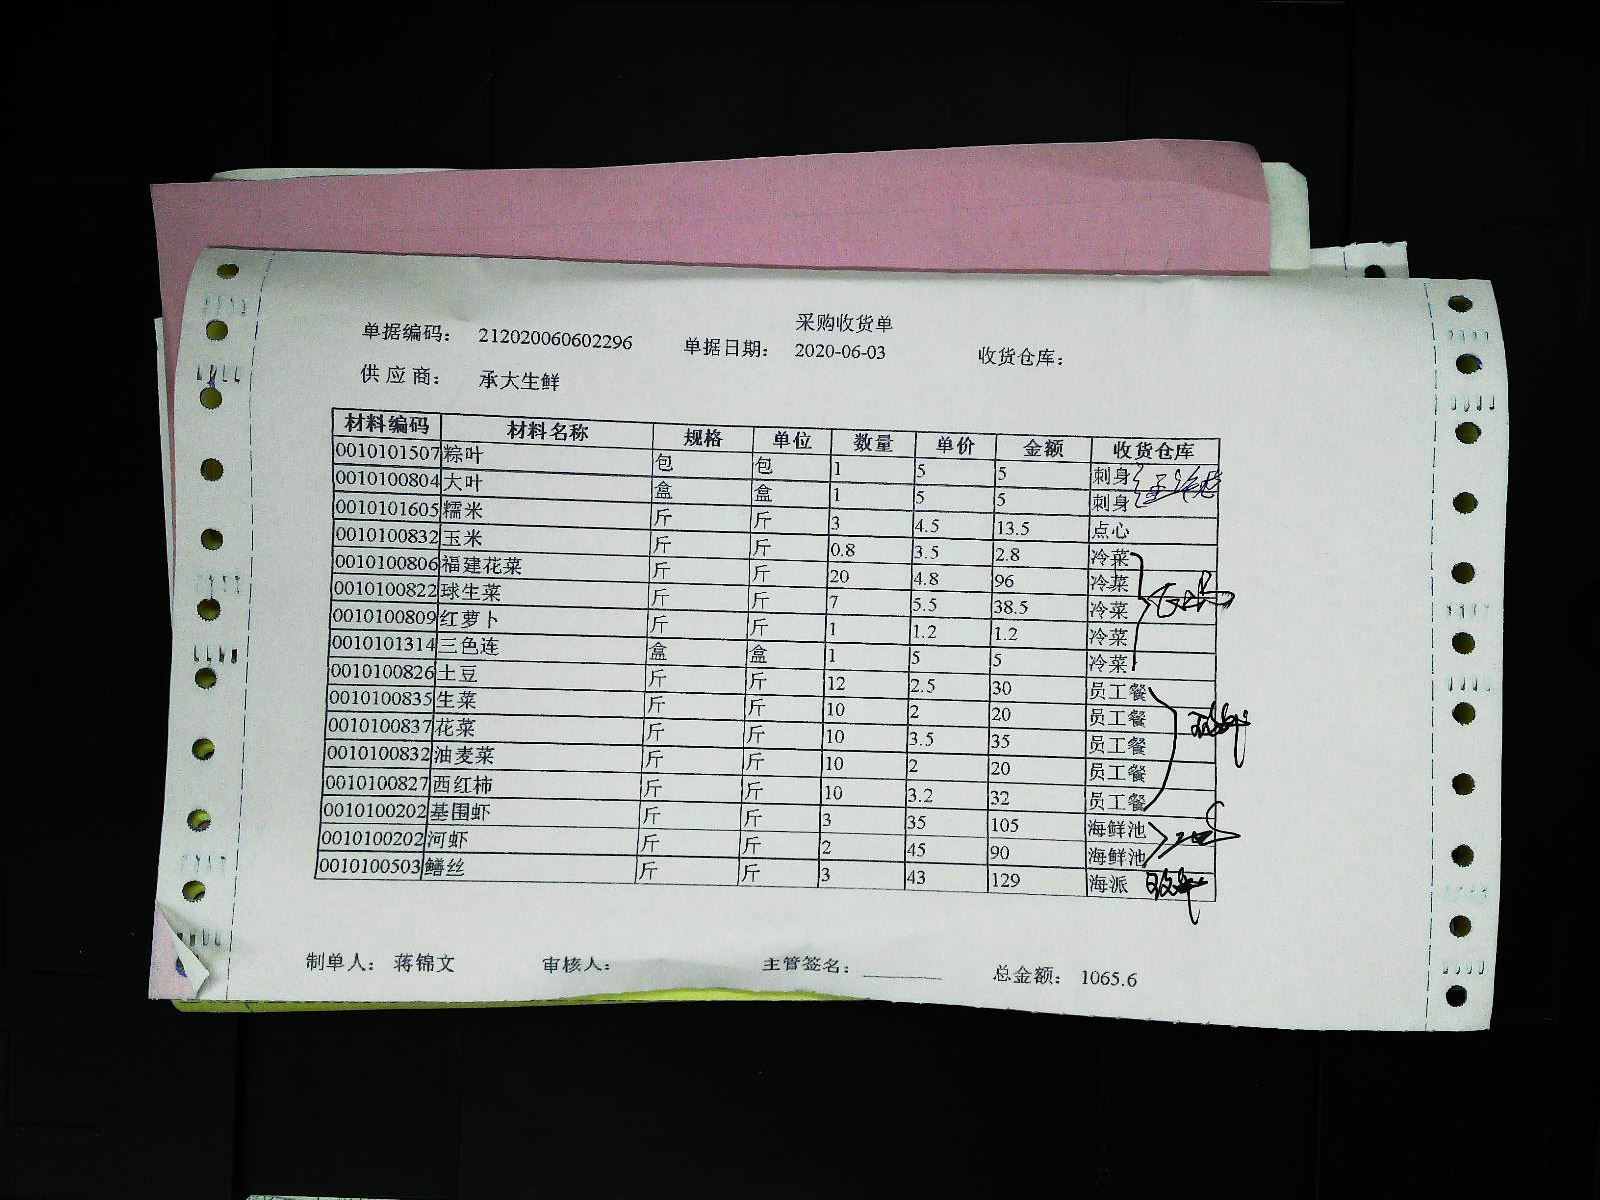 采购收货单
单据编码： 212020060602296 单据日期： 2020-06-03 收货仓库：
供 应 商： 承大生鲜
材料编码 材料名称 规格 单位 数量 单价 金额 收货仓库
0010101507 粽叶 包 包 1 5 5 刺身
0010100804 大叶 盒 盒 1 5 5 刺身
0010101605 糯米 斤 斤 3 4.5 13.5 点心
0010100832 玉米 斤 斤 0.8 3.5 2.8 冷菜
0010100806 福建花菜 斤 斤 20 4.8 96 冷菜
0010100822 球生菜 斤 斤 7 5.5 38.5 冷菜
0010100809 红萝卜 斤 斤 1 1.2 1.2 冷菜
0010101314 三色连 盒 盒 1 5 5 冷菜
0010100826 土豆 斤 斤 12 2.5 30 员工餐
0010100835 生菜 斤 斤 10 2 20 员工餐
0010100837 花菜 斤 斤 10 3.5 35 员工餐
0010100832 油麦菜 斤 斤 10 2 20 员工餐
0010100827 西红柿 斤 斤 10 3.2 32 员工餐
0010100202 基围虾 斤 斤 3 35 105 海鲜池
0010100202 河虾 斤 斤 2 45 90 海鲜池
0010100503 鳝丝 斤 斤 3 43 129 海派
制单人： 蒋锦文 审核人： 主管签名： 总金额： 1065.6